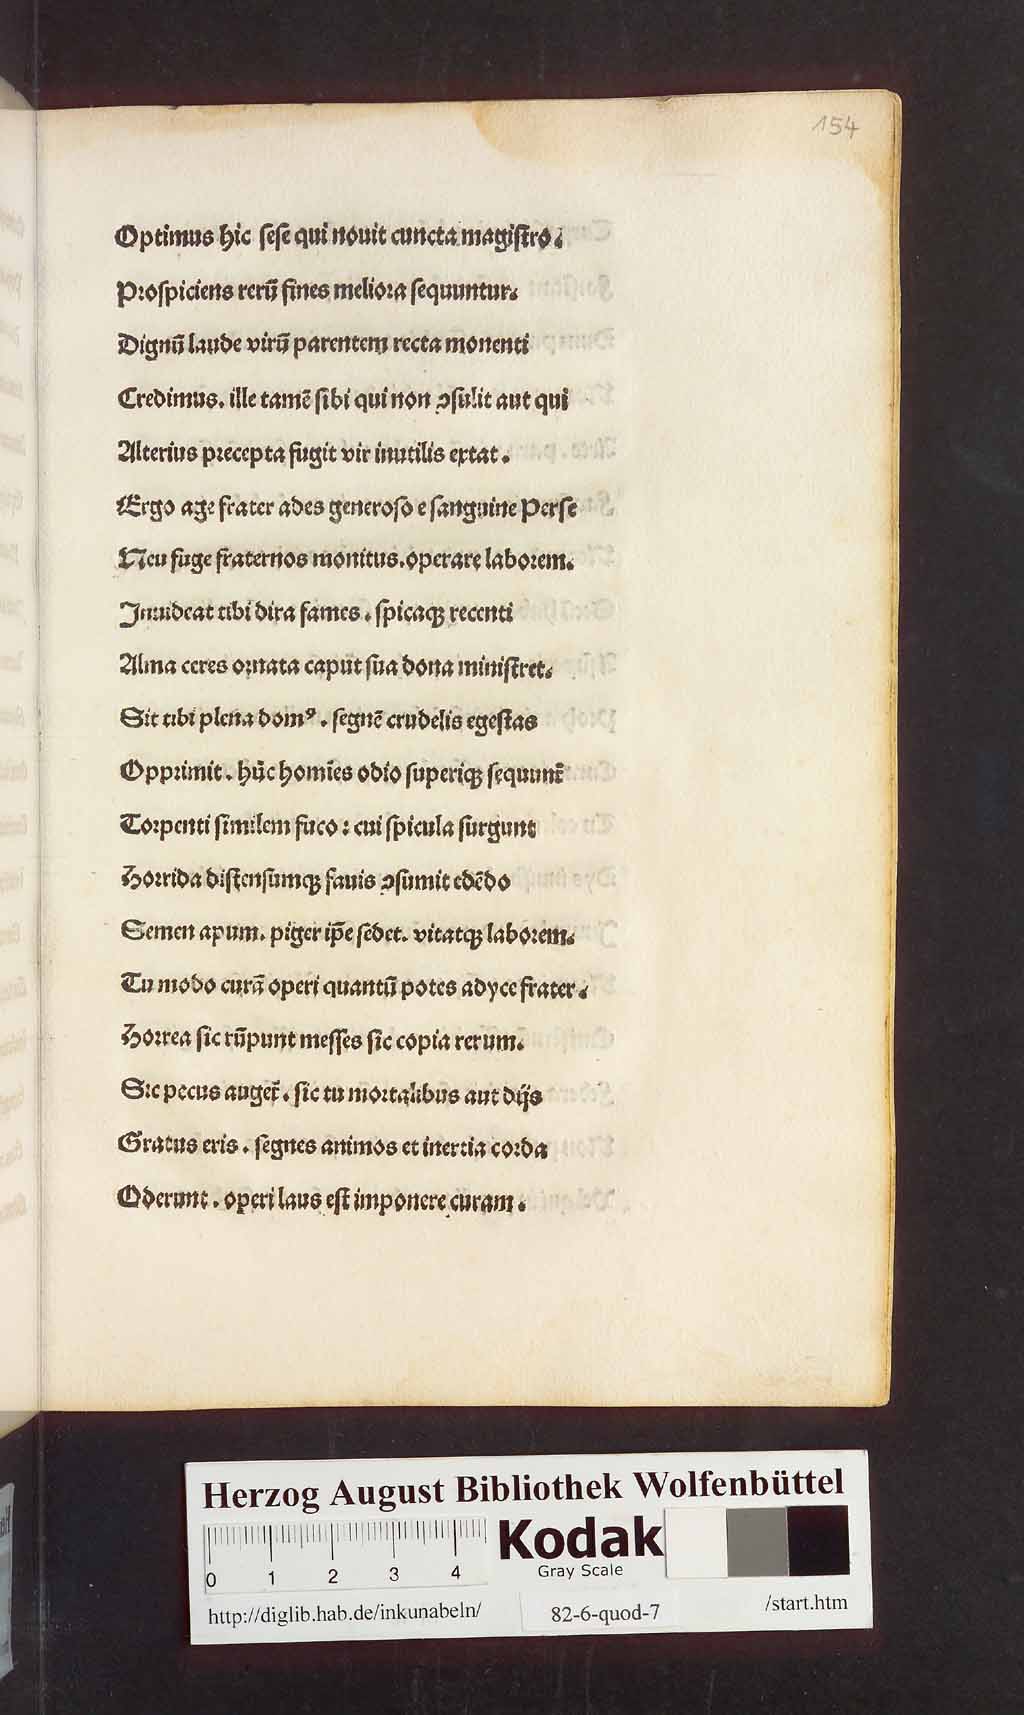 154
Optimus hic sese qui nouit cuncta magistro.
Prospiciens rerū fines meliora sequuntur.
Dignū laude virū parentem recta monenti
Credimus. ille tamē sibi qui non ↄsulit aut qui
Alterius precepta fugit vir inutilis extat.
Ergo age frater ades generoso e sanguine Perse
Neu fuge fraternos monitus. operare laborem.
Inuideat tibi dira fames. spicaqꝫ recenti
Alma ceres ornata caput sua dona ministret.
Sit tibi plena domꝰ. segnē crudelis egestas
Opprimit. hūc homīes odio superiqꝫ sequunt̄
Torpenti similem fuco: cui spicula surgunt
Horrida distensumqꝫ fauis ↄsumit edēdo
Semen apum. piger ip̄e sedet. vitatqꝫ laborem.
Tu modo curā operi quantū potes adyce frater.
Horrea sic rūpunt messes sic copia rerum.
Sic pecus auget̄. sic tu mortalibus aut dijs
Gratus eris. segnes animos et inertia corda
Oderunt. operi laus est imponere curam.
Herzog August Bibliothek Wolfenbüttel
Kodak
Gray Scale
0 1 2 3 4
http://diglib.hab.de/inkunabeln/ 82-6-quod-7 /start.htm